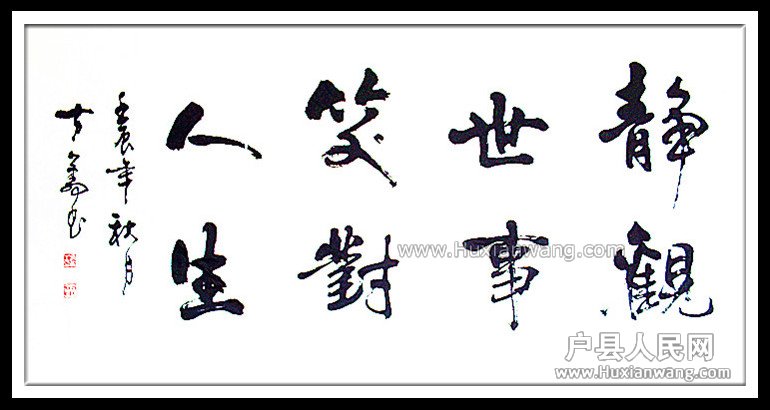 静觀
世事
笑對
人生
壬辰年秋月
书
www.Huxianwang.com
户县人民网
www.Huxianwang.com